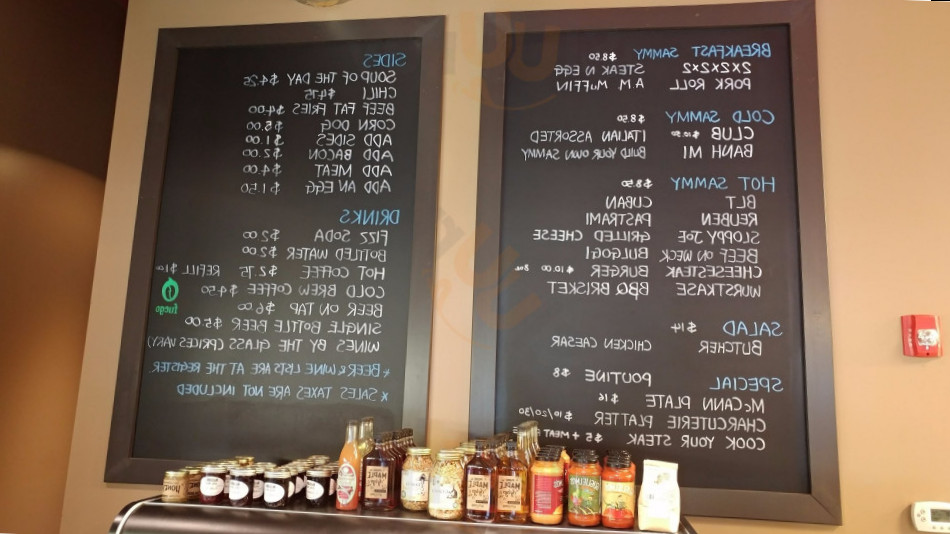 BREAKFAST SAMMY $8.50
2X2X2X2 STEAK N EGG
PORK ROLL A.M. MUFFIN
COLD SAMMY $8.50
CLUB $10.50 ITALIAN ASSORTED
BANH MI BUILD YOUR OWN SAMMY
HOT SAMMY $8.50
BLT CUBAN
REUBEN PASTRAMI
SLOPPY JOE GRILLED CHEESE
BEEF ON WECK BULGOGI
CHEESESTEAK BURGER $10.00 8oz
WURSTKASE BBQ BRISKET
SALAD $14
BUTCHER CHICKEN CAESAR
SPECIAL POUTINE $8
McCANN PLATE $16
CHARCUTERIE PLATTER $10/20/30
COOK YOUR STEAK $5 + MEAT
SIDES
SOUP OF THE DAY $4.25
CHILI $4.75
BEEF FAT FRIES $4.00
CORN DOG $5.00
ADD SIDES $1.00
ADD BACON $2.00
ADD MEAT $4.00
ADD AN EGG $1.50
DRINKS
FIZZ SODA $2.00
BOTTLED WATER $2.00
HOT COFFEE $2.75 REFILL
COLD BREW COFFEE $4.50
BEER ON TAP $6.00
fuego
SINGLE BOTTLE BEER $5.00
WINES BY THE GLASS (PRICES VARY)
* BEER & WINE LISTS ARE AT THE REGISTER
* SALES TAXES ARE NOT INCLUDED
MAPLE
MAPLE